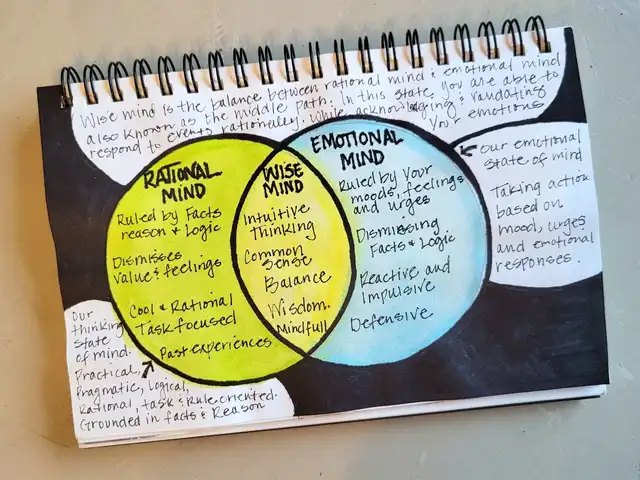 Wise mind is the balance between rational mind & emotional mind
also known as the middle path. In this state, you are able to
respond to events rationelley. While acknowledging & validating
your emotions
RATIONAL
MIND
Ruled by Facts
reason & Logic
Dismisses
values & feelings
Cool & Rational
Task focused
Past experiences
WISE
MIND
Intuitive
thinking
Common
Sense
Balance
Wisdom.
Mindfull
EMOTIONAL
MIND
Ruled by Your
moods, feelings
and urges
Dismissing
Facts & Logic
Reactive and
Impulsive
Defensive
Our emotional
state of mind
Taking action
based on
mood, urges
and emotional
responses.
Our
thinking
state
of mind.
Practical,
Pragmatic, Logical,
Rational, task & Rule oriented.
Grounded in facts & Reason